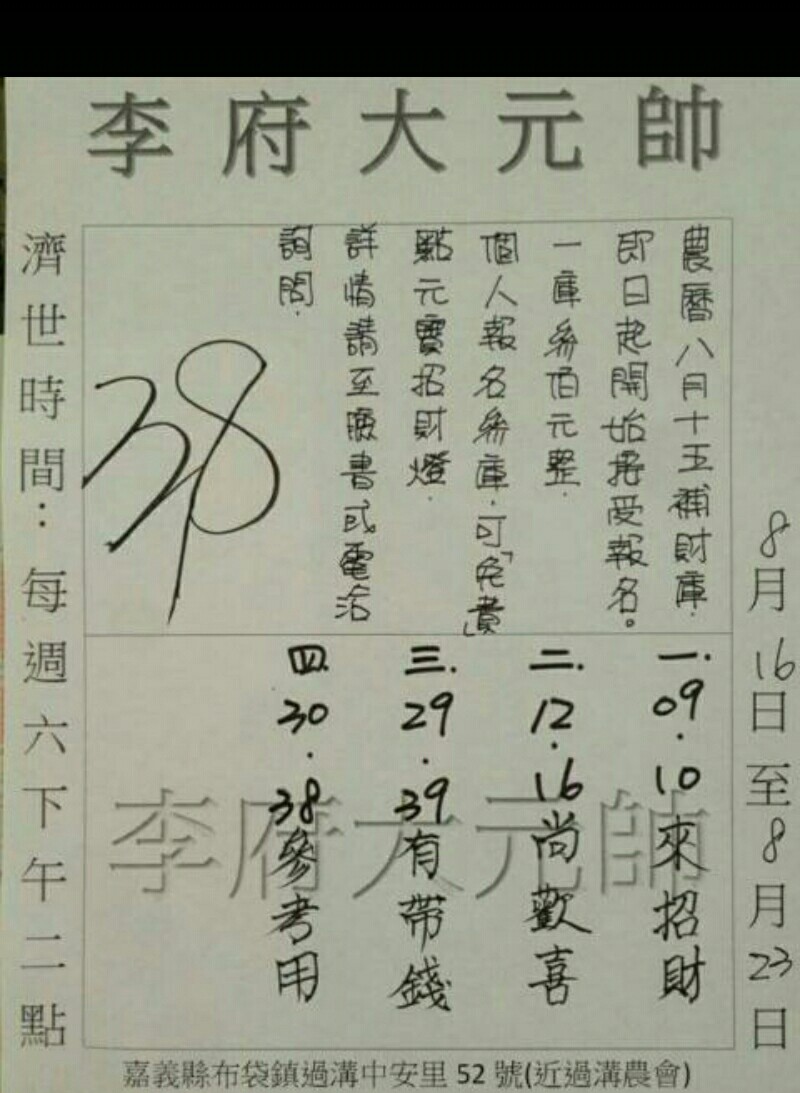 李府大元帥
8月16日至8月23日
農曆八月十五補財庫.
即日起開始接受報名。
一庫叁佰元整.
個人報名叁庫.可「免費」
點元寶招財燈.
詳情請至臉書或電洽
詢問.
38
一.09.10來招財
二.12.16尚歡喜
三.29.39有帶錢
四.30.38參考用
李府大元帥
濟世時間：每週六下午二點
嘉義縣布袋鎮過溝中安里52號(近過溝農會)